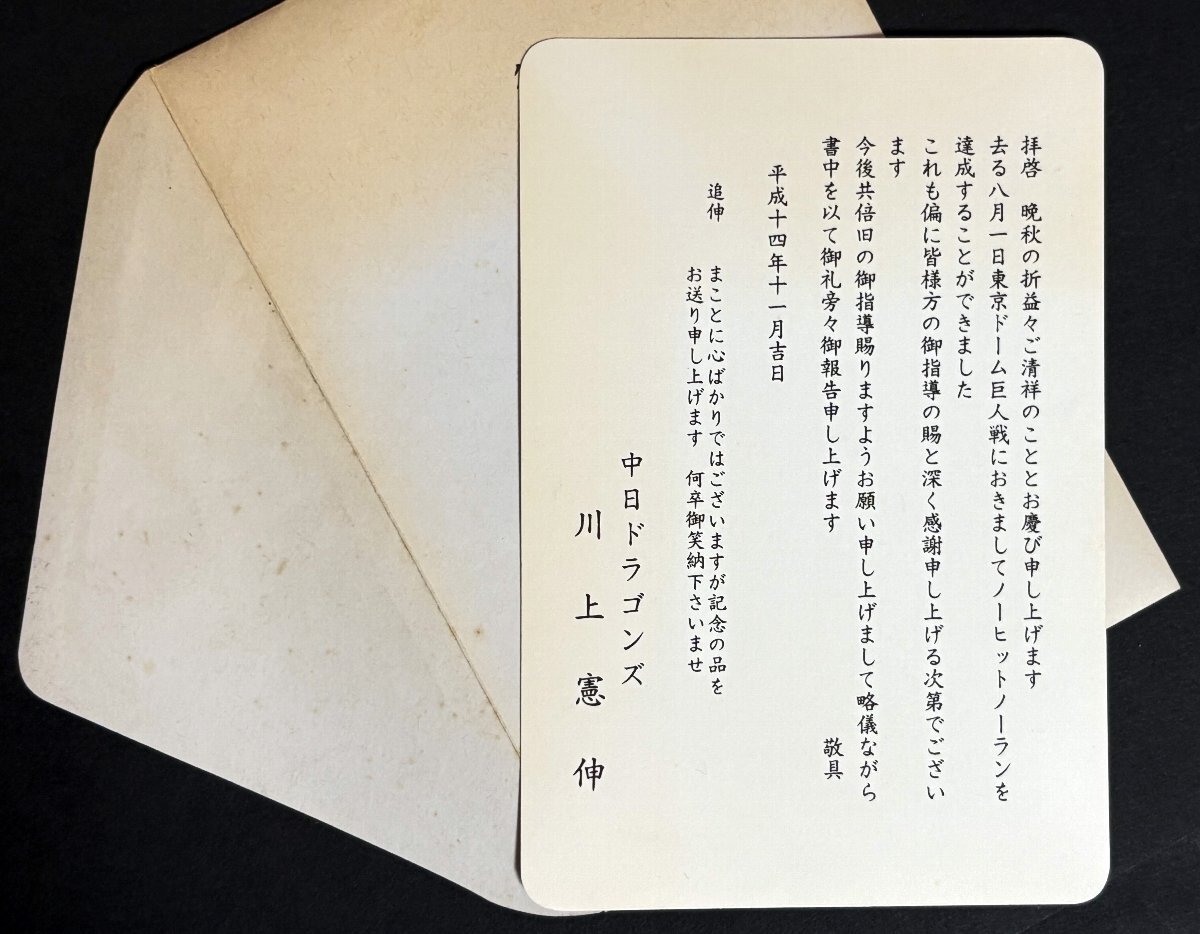 拝啓　晩秋の折益々ご清祥のこととお慶び申し上げます
去る八月一日東京ドーム巨人戦におきましてノーヒットノーランを
達成することができました
これも偏に皆様方の御指導の賜と深く感謝申し上げる次第でござい
ます
今後共倍旧の御指導賜りますようお願い申し上げまして略儀ながら
書中を以て御礼旁々御報告申し上げます　敬具
平成十四年十一月吉日
追伸　まことに心ばかりではございますが記念の品を
お送り申し上げます　何卒御笑納下さいませ
中日ドラゴンズ
川上憲伸